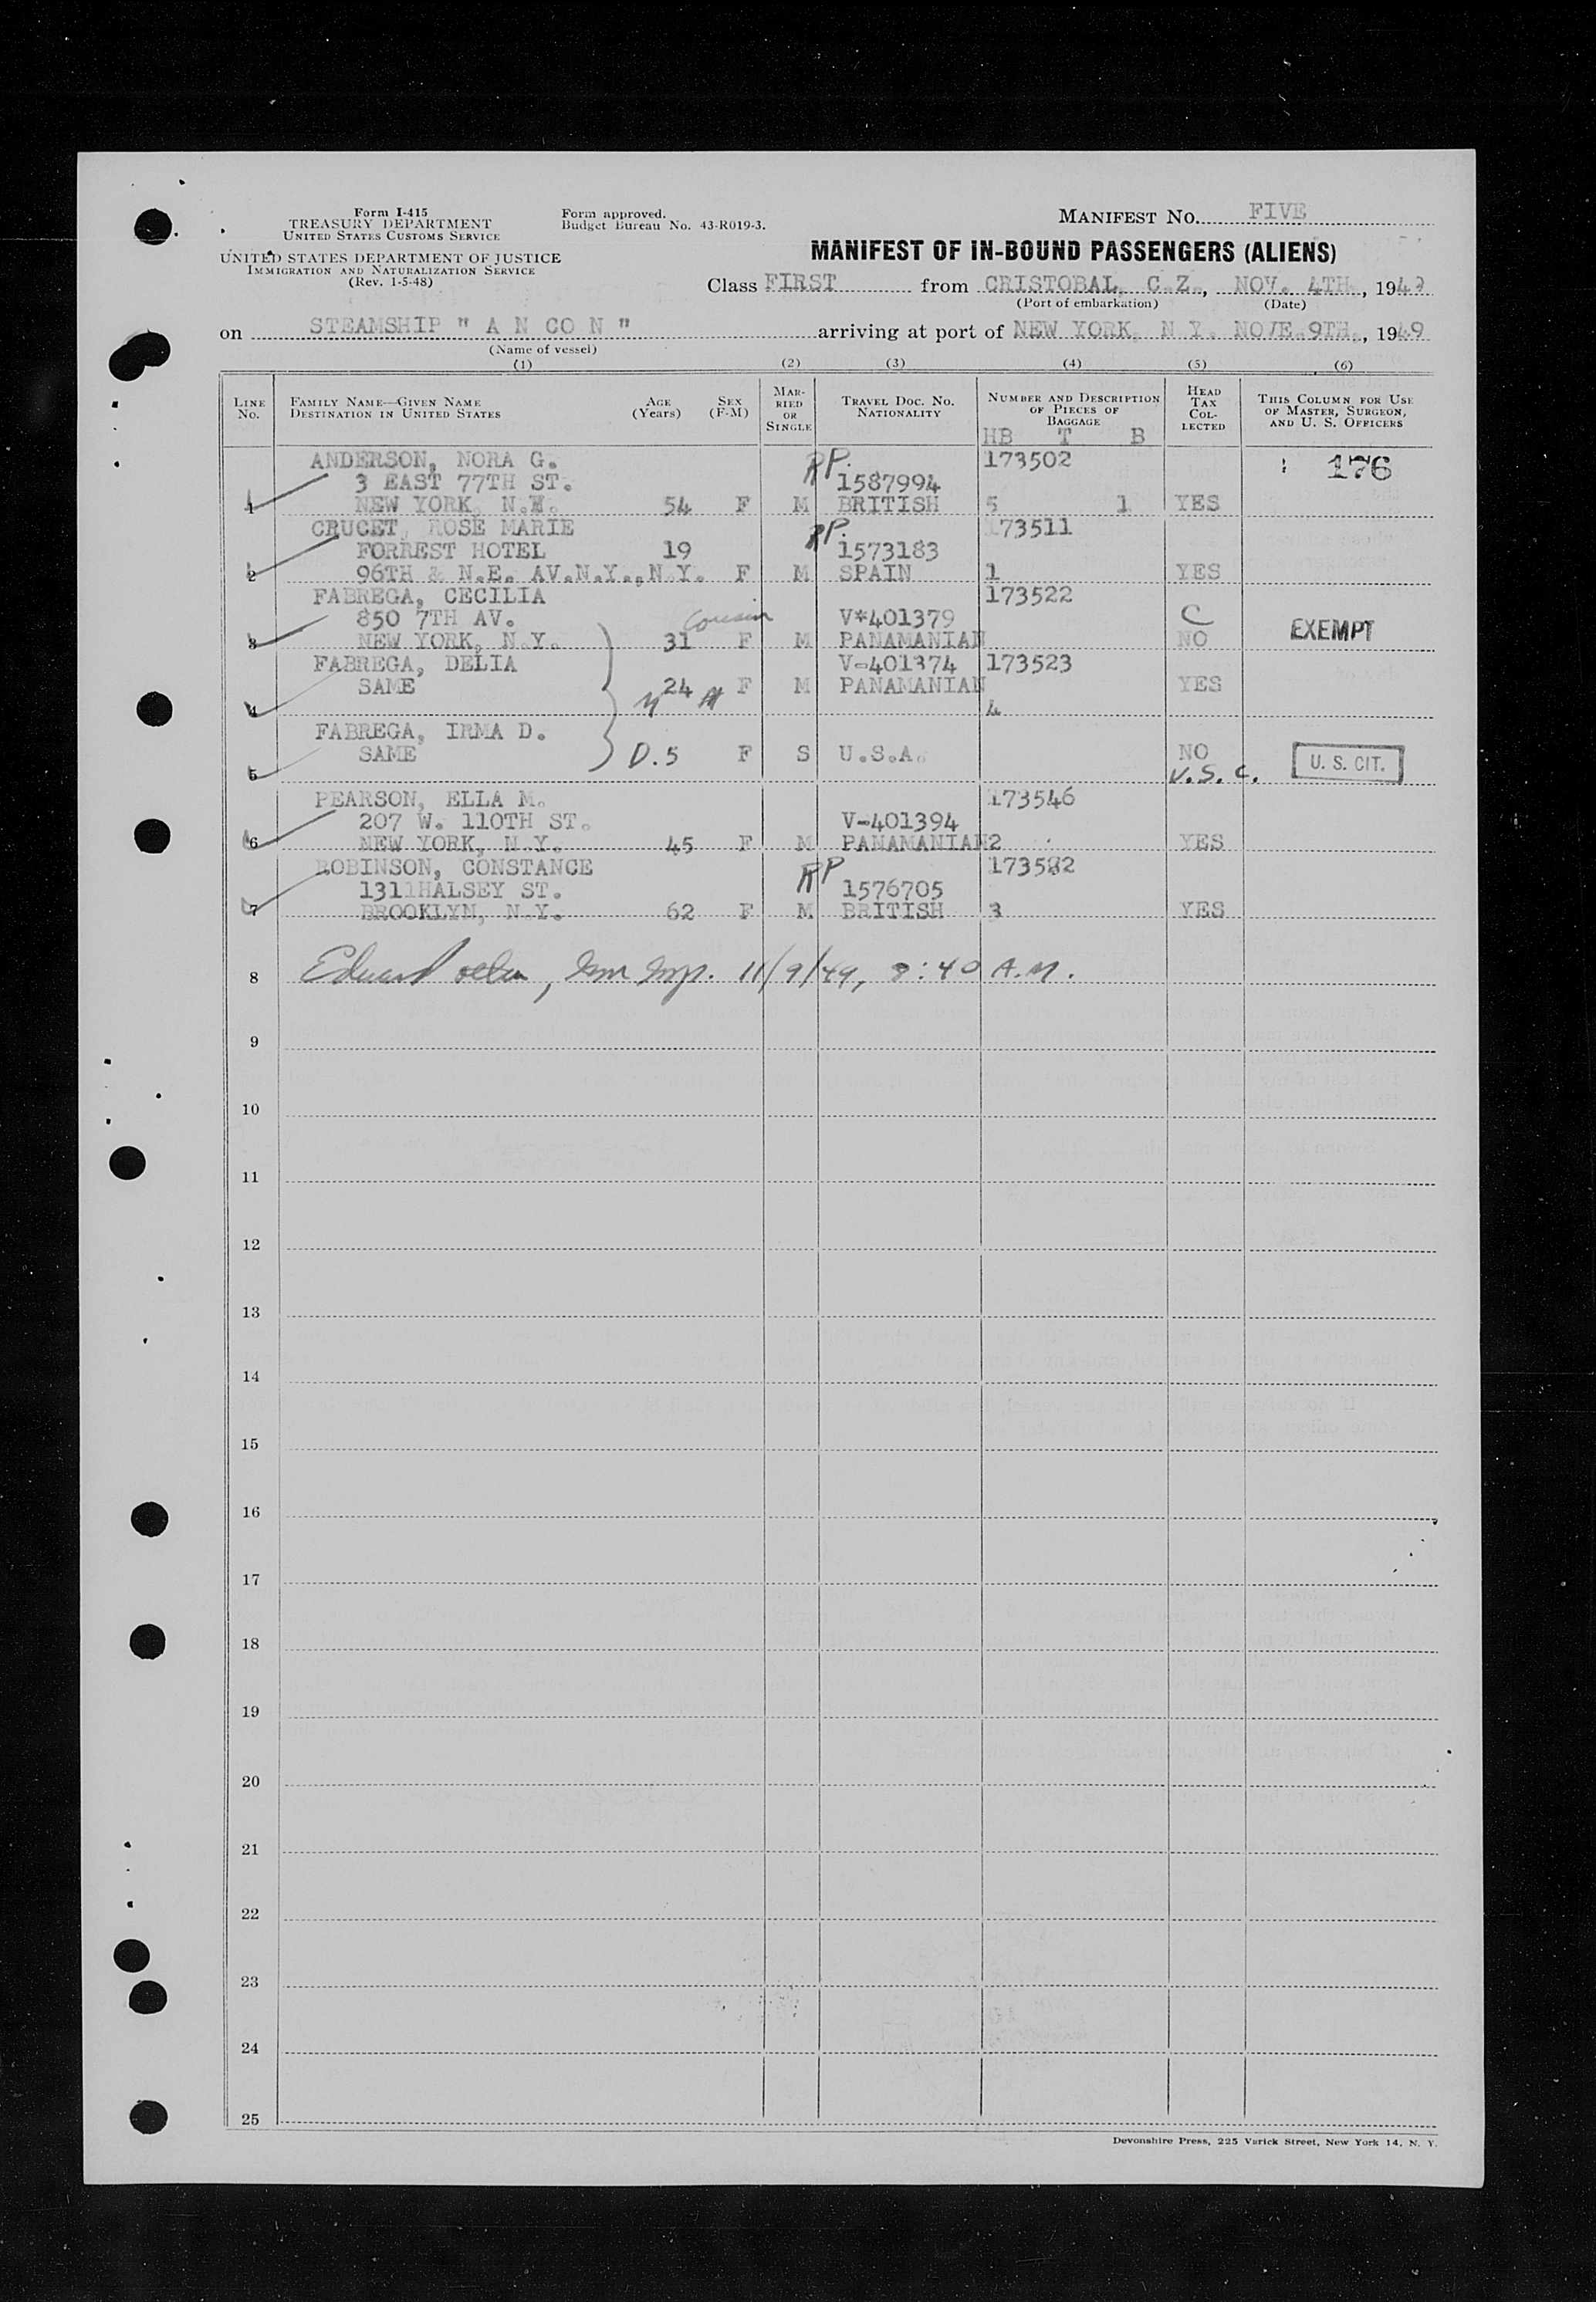 Form I-415
TREASURY DEPARTMENT
UNITED STATES CUSTOMS SERVICE
UNITED STATES DEPARTMENT OF JUSTICE
IMMIGRATION AND NATURALIZATION SERVICE
(Rev. 1-5-48)
Form approved.
Budget Bureau No. 43-R019-3.
MANIFEST NO. FIVE
MANIFEST OF IN-BOUND PASSENGERS (ALIENS)
Class FIRST from CRISTOBAL, C.Z., NOV. 4TH, 1949
(Port of embarkation) (Date)
on STEAMSHIP " A N CO N " arriving at port of NEW YORK, N.Y. 9TH., 1949
(Name of vessel)
(1) (2) (3) (4) (5) (6)
LINE NO. FAMILY NAME—GIVEN NAME DESTINATION IN UNITED STATES AGE (Years) SEX (F-M) MARRIED OR SINGLE TRAVEL DOC. NO. NATIONALITY NUMBER AND DESCRIPTION OF PIECES OF BAGGAGE HEAD TAX COLLECTED THIS COLUMN FOR USE OF MASTER, SURGEON, AND U. S. OFFICERS
HB T B
ANDERSON, NORA G. RP. 173502 176
3 EAST 77TH ST. 1587994
1 NEW YORK, 54 F M BRITISH 5 1 YES
CRUCET, ROSE MARIE RP. 173511
FORREST HOTEL 19 1573183
2 96TH & N.E. AV.N.Y.,N.Y. F M SPAIN 1 YES
FABREGA, CECILIA 173522
850 7TH AV. cousin V*401379 C
3 NEW YORK, N.Y. 31 F M PANAMANIAN NO EXEMPT
FABREGA, DELIA V-401374 173523
SAME 24 F M PANAMANIAN YES
4 4
FABREGA, IRMA D.
SAME D.5 F S U.S.A. NO U. S. CIT.
5 U.S.C.
PEARSON, ELLA M. 173546
207 W. 110TH ST. V-401394
6 NEW YORK, N.Y. 45 F M PANAMANIAN 2 YES
ROBINSON, CONSTANCE RP 173582
1311HALSEY ST. 1576705
7 BROOKLYN, N.Y. 62 F M BRITISH 3 YES
8 Edward Imm Insp. 11/9/49, 8:40 A.M.
9
10
11
12
13
14
15
16
17
18
19
20
21
22
23
24
25
Devonshire Press, 225 Varick Street, New York 14, N. Y.